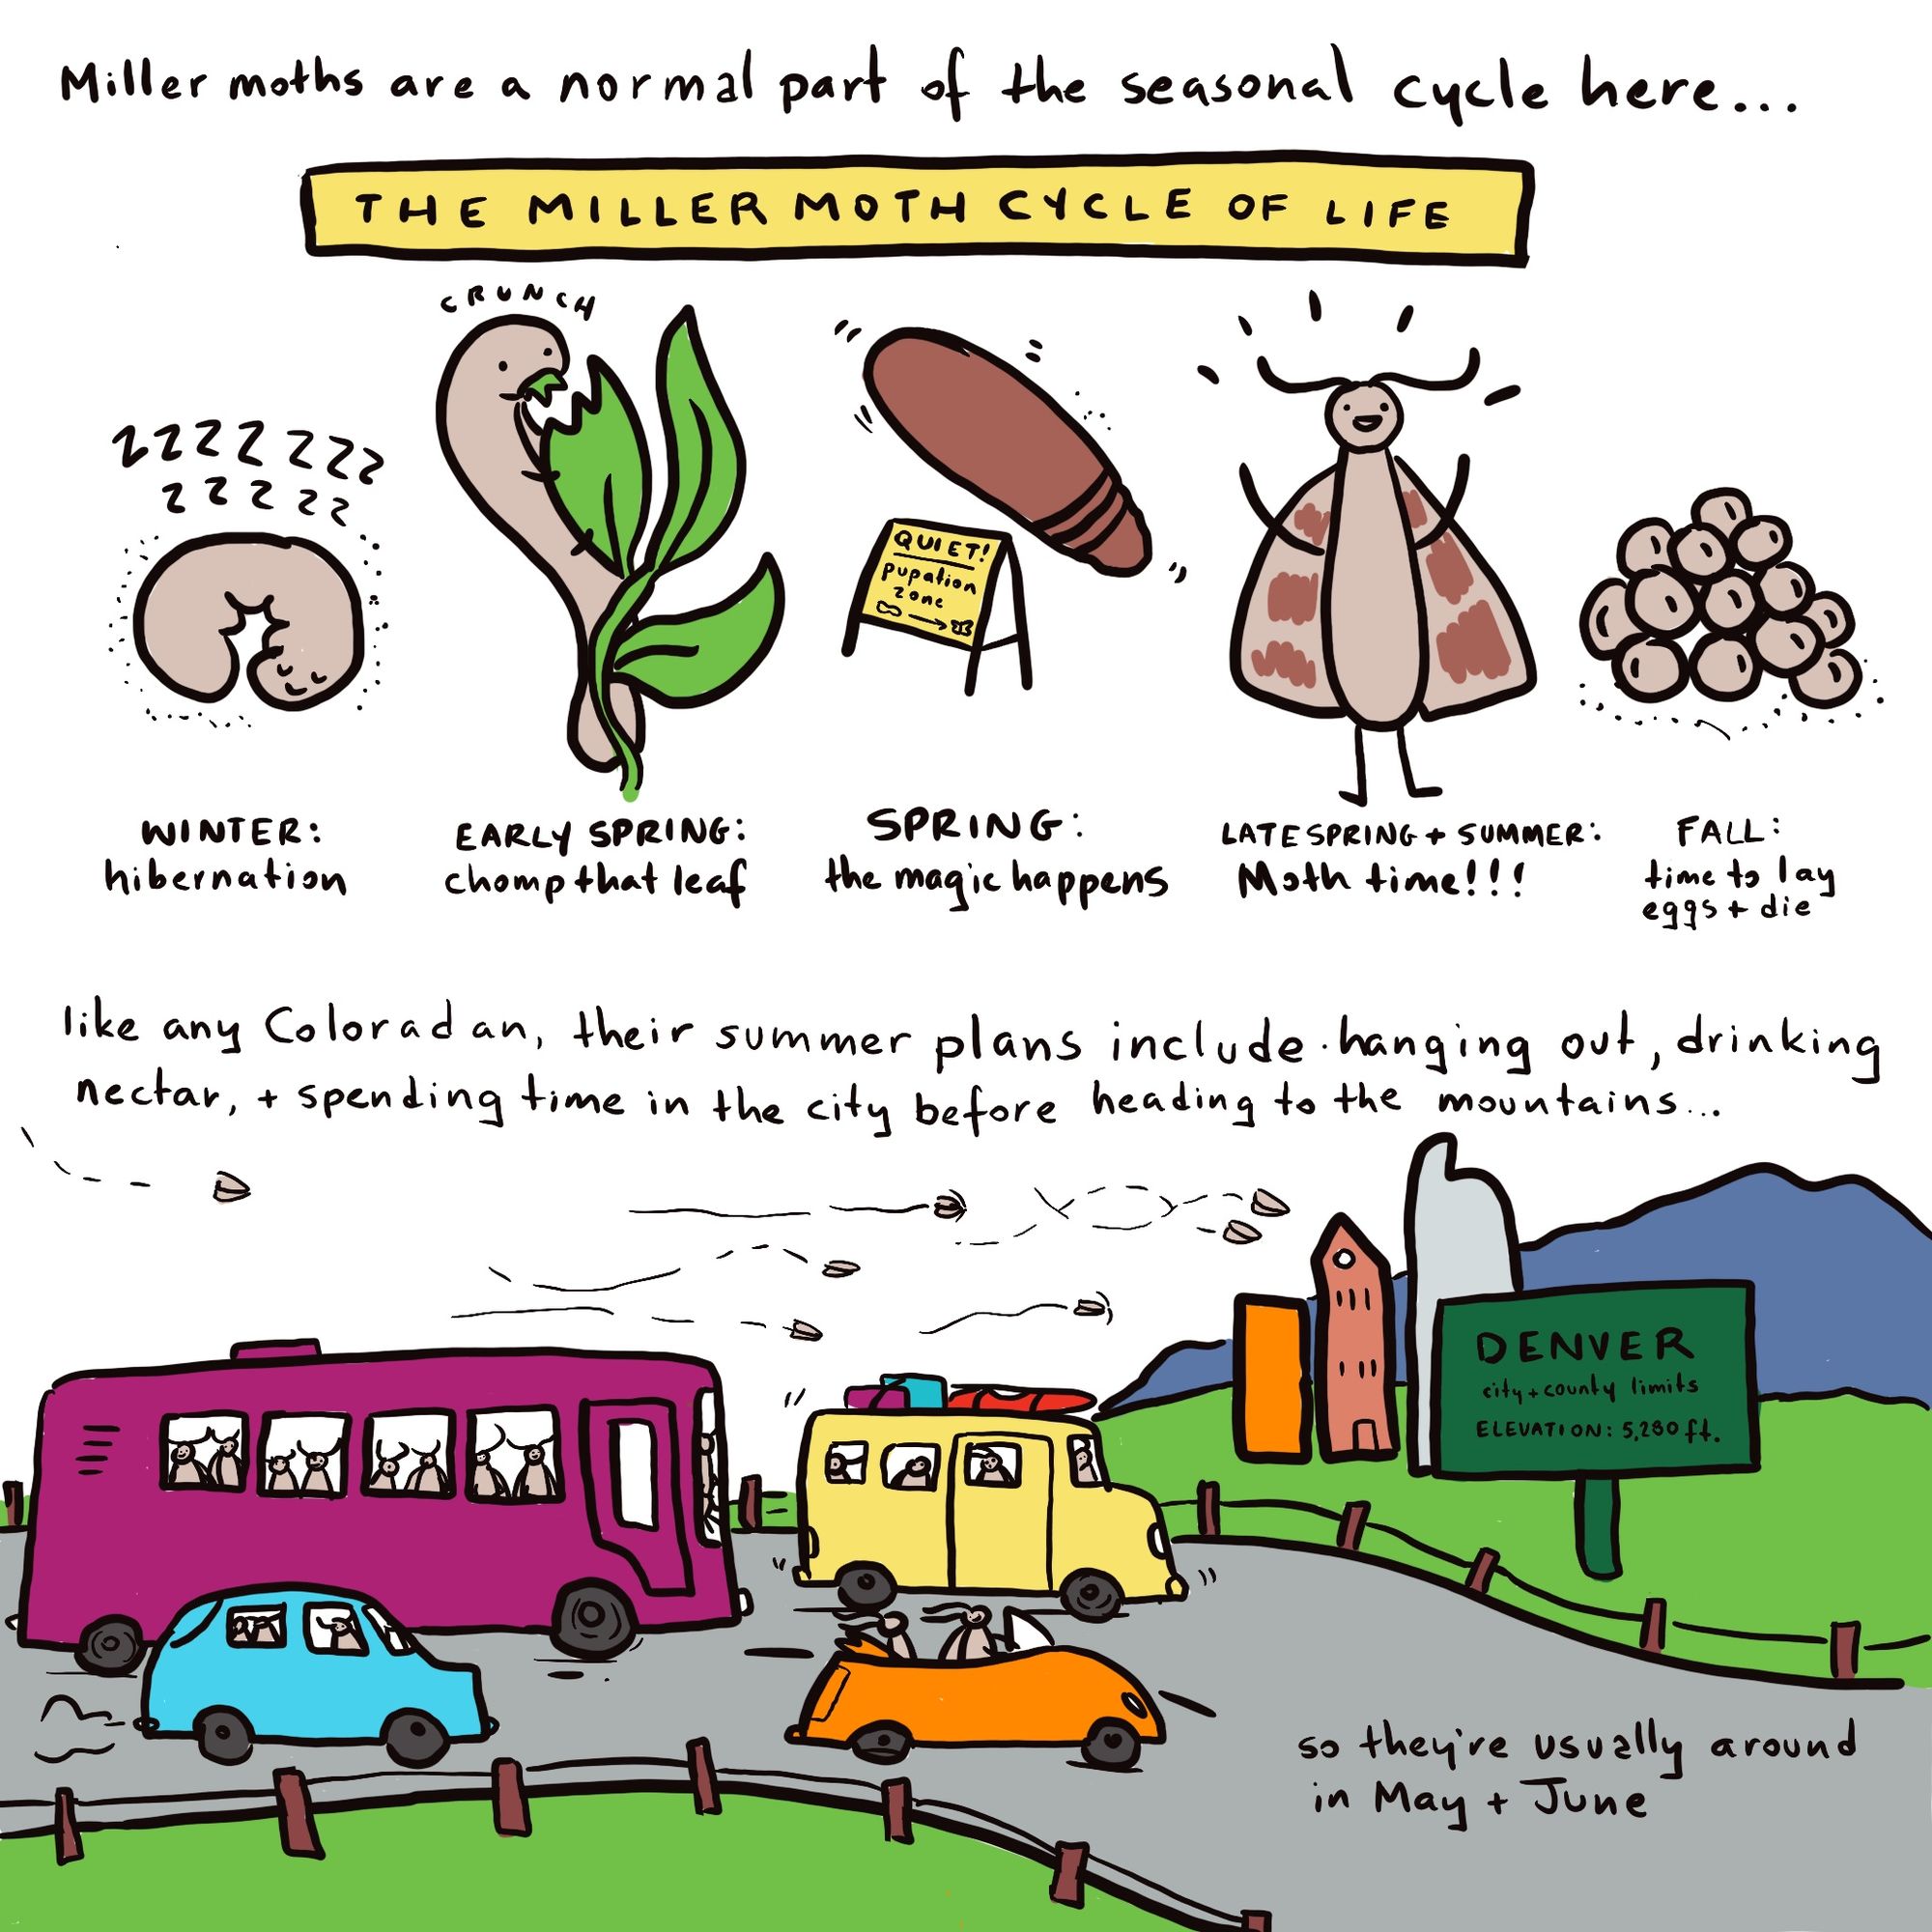 Miller moths are a normal part of the seasonal cycle here...
THE MILLER MOTH CYCLE OF LIFE
CRUNCH
zzzzzzz
zzzzz
QUIET!
pupation
zone
WINTER:
hibernation
EARLY SPRING:
chomp that leaf
SPRING:
the magic happens
LATE SPRING + SUMMER:
Moth time!!!
FALL:
time to lay
eggs + die
like any Coloradan, their summer plans include hanging out, drinking
nectar, + spending time in the city before heading to the mountains...
DENVER
city + county limits
ELEVATION: 5,280 ft.
so they're usually around
in May + June